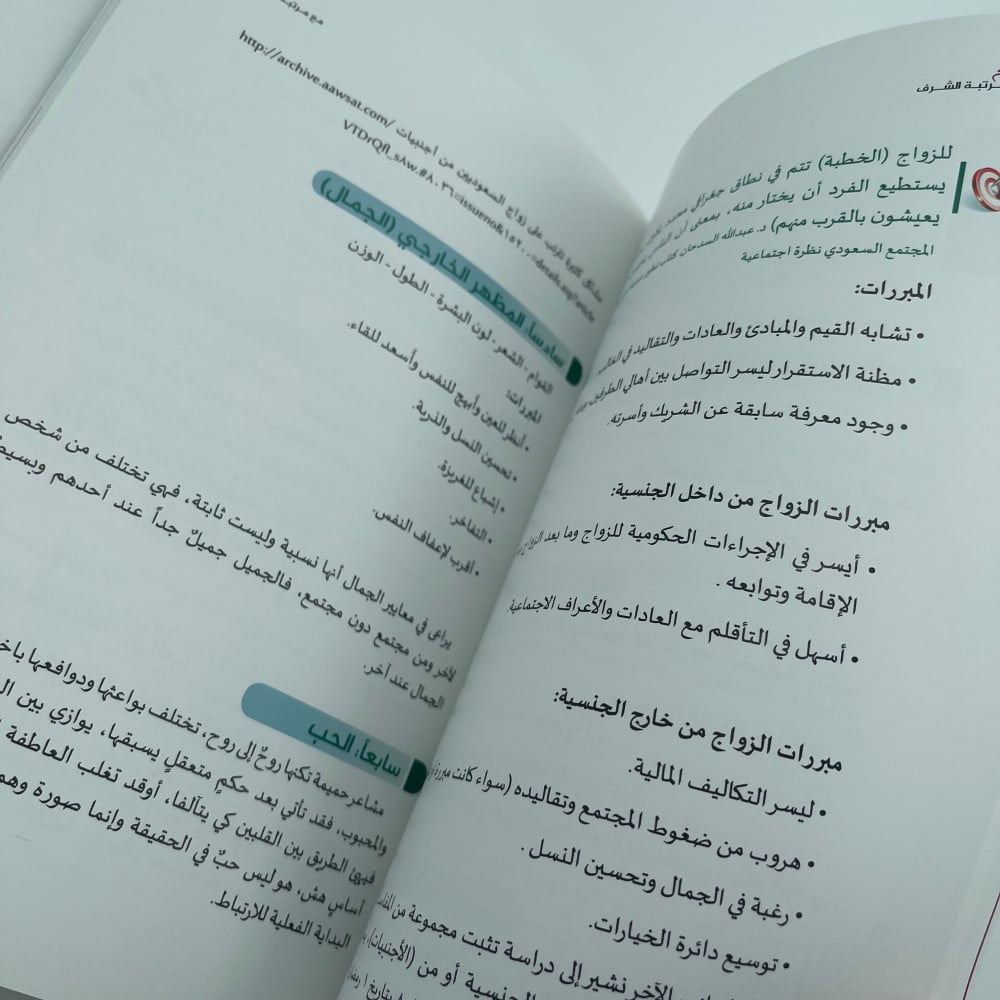 مرتبة الشرف
للزواج (الخطبة) تتم في نطاق جغرافي
يستطيع الفرد أن يختار منه، بمعنى أن
يعيشون بالقرب منهم) د. عبدالله السدحان كتاب
المجتمع السعودي نظرة اجتماعية
المبررات:
• تشابه القيم والمبادئ والعادات والتقاليد في
• مظنة الاستقرار ليسر التواصل بين أهالي الطرفين،
• وجود معرفة سابقة عن الشريك وأسرته.
مبررات الزواج من داخل الجنسية:
• أيسر في الإجراءات الحكومية للزواج وما بعد الزواج
الإقامة وتوابعه .
• أسهل في التأقلم مع العادات والأعراف الاجتماعية.
مبررات الزواج من خارج الجنسية:
• ليسر التكاليف المالية.
• هروب من ضغوط المجتمع وتقاليده (سواء كانت مبررة
• رغبة في الجمال وتحسين النسل .
• توسيع دائرة الخيارات.
الآخر نشير إلى دراسة تثبت مجموعة من
الجنسية أو من (الأجنبيات)
بتاريخ ١
مع مرتبة
زواج السعوديين من أجنبيات http://archive.aawsat.com/
سادساً: المظهر الخارجي (الجمال)
القوام - الشعر - لون البشرة - الطول - الوزن
المبررات:
• أنظر للعين وأبهج للنفس وأسعد للقاء.
• تحسين النسل والذرية.
• إشباع للغريزة.
• التفاخر.
• أقرب لإعفاف النفس.
يراعى في معايير الجمال أنها نسبية وليست ثابتة، فهي تختلف من شخص
لآخر ومن مجتمع دون مجتمع، فالجميل جميلٌ جداً عند أحدهم وبسيط
الجمال عند آخر.
سابعاً: الحب
مشاعر حميمة تكنها روحٌ إلى روح، تختلف بواعثها ودوافعها
والمحبوب، فقد تأتي بعد حكمٍ متعقلٍ يسبقها، يوازي بين
فيهيئ الطريق بين القلبين كي يتآلفا، أو قد تغلب العاطفة
أساسٍ هش، هو ليس حبٌ في الحقيقة وإنما صورة وهم
البداية الفعلية للارتباط.